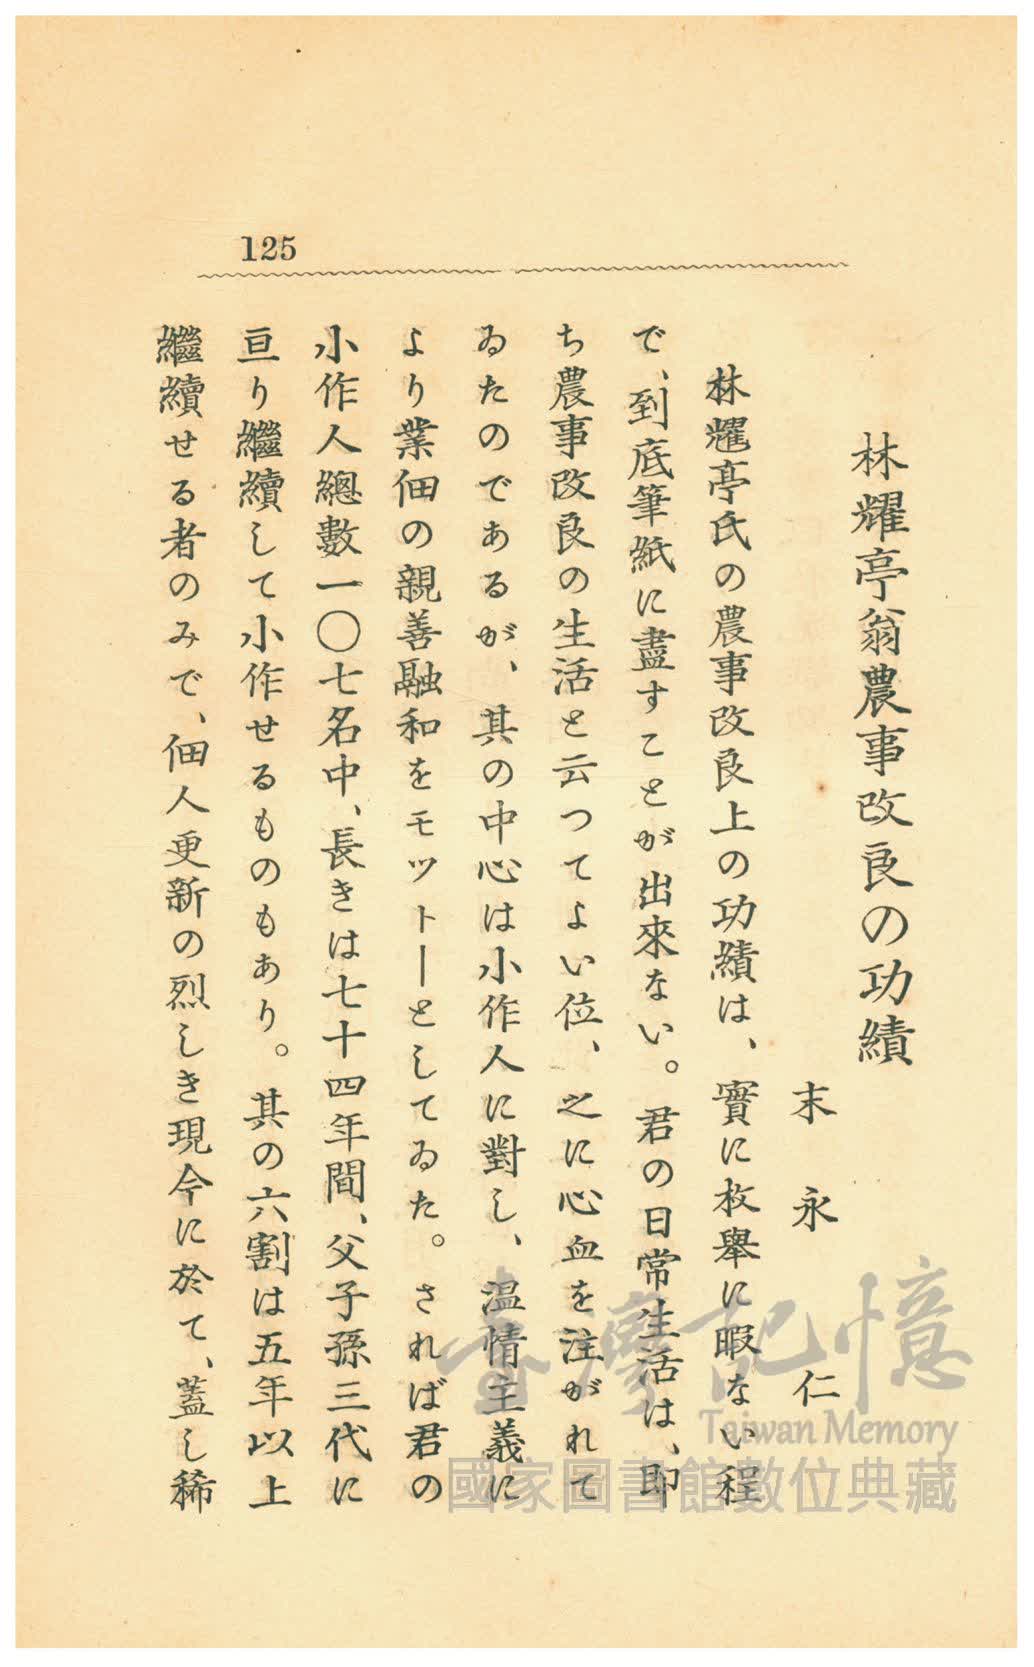 125
林耀亭翁農事改良の功績
末永仁
林耀亭氏の農事改良上の功績は、實に枚擧に暇ない程
で、到底筆紙に盡すことが出來ない。君の日常生活は、即
ち農事改良の生活と云つてよい位、之に心血を注がれて
ゐたのであるが、其の中心は小作人に對し、温情主義に
より業佃の親善融和をモットーとしてゐた。されば君の
小作人總數一〇七名中、長きは七十四年間、父子孫三代に
亘り繼續して小作せるものもあり。其の六割は五年以上
繼續せる者のみで、佃人更新の烈しき現今に於て、蓋し稀
臺灣記憶
Taiwan Memory
國家圖書館數位典藏